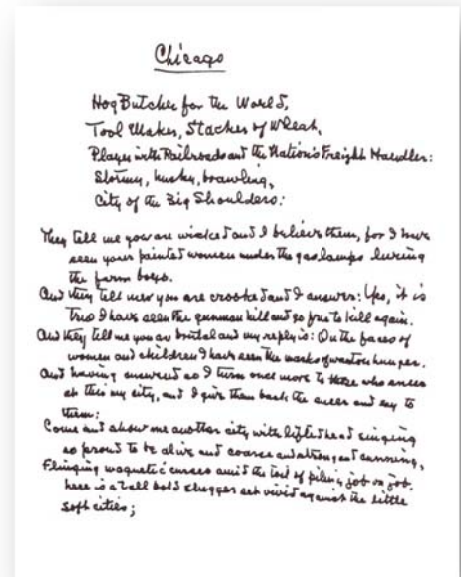 Chicago
Hog Butcher for the World,
Tool Maker, Stacker of Wheat,
Player with Railroads and the Nation's Freight Handler:
Stormy, husky, brawling,
City of the Big Shoulders:
They tell me you are wicked and I believe them, for I have
seen your painted women under the gas lamps luring
the farm boys.
And they tell me you are crooked and I answer: Yes, it is
true I have seen the gunman kill and go free to kill again.
And they tell me you are brutal and my reply is: On the faces of
women and children I have seen the marks of wanton hunger.
And having answered so I turn once more to those who sneer
at this my city, and I give them back the sneer and say to
them:
Come and show me another city with lifted head singing
so proud to be alive and coarse and strong and cunning,
Flinging magnetic curses amid the toil of piling job on job,
here is a tall bold slugger set vivid against the little
soft cities;